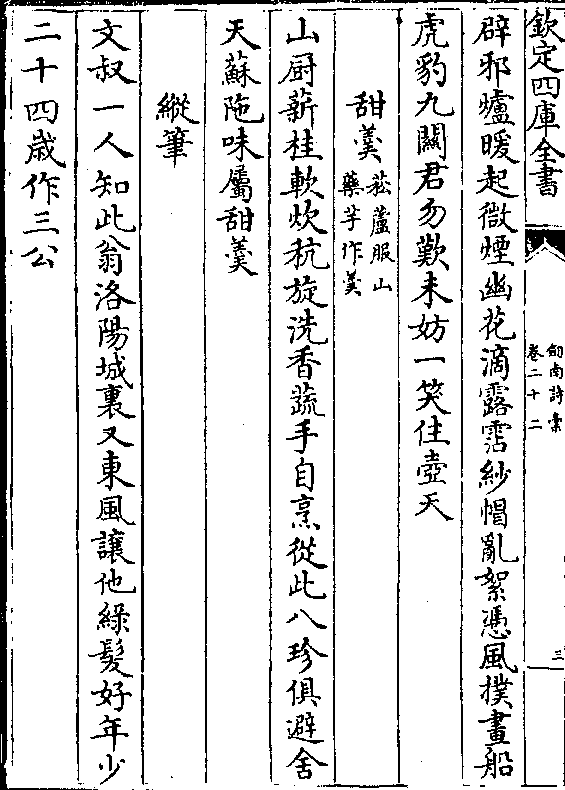 欽定四庫全書
劒南詩稾
卷二十二
三
辟邪爐暖起微煙幽花滴露霑紗帽亂絮憑風撲畫船
虎豹九關君勿歎未妨一笑住壺天
甜羮
菘蘆服山
藥芋作羮
山厨薪桂軟炊秔旋洗香蔬手自烹從此八珍俱避舍
天蘇陁味屬甜羮
縱筆
文叔一人知此翁洛陽城裏又東風讓他綠髮好年少
二十四歳作三公